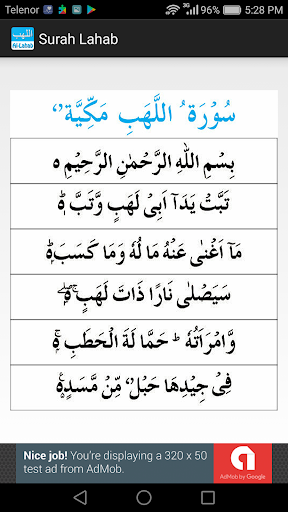 Telenor 4G 96% 5:28 PM
اللهب
Al-Lahab
Surah Lahab
سُوْرَةُ اللَّهَبِ مَكِّيَّةٌ
بِسْمِ اللهِ الرَّحْمٰنِ الرَّحِيْمِ ٥
تَبَّتْ يَدَآ اَبِىْ لَهَبٍ وَّتَبَّ ؕ
مَآ اَغْنٰى عَنْهُ مَا لُهٗ وَمَا كَسَبَ ؕ
سَيَصْلٰى نَارًا ذَاتَ لَهَبٍ
وَّامْرَاَتُهٗ ؕ حَمَّا لَةَ الْحَطَبِ
فِىْ جِيْدِهَا حَبْلٌ مِّنْ مَّسَدٍ
Nice job! You're displaying a 320 x 50
test ad from AdMob.
AdMob by Google